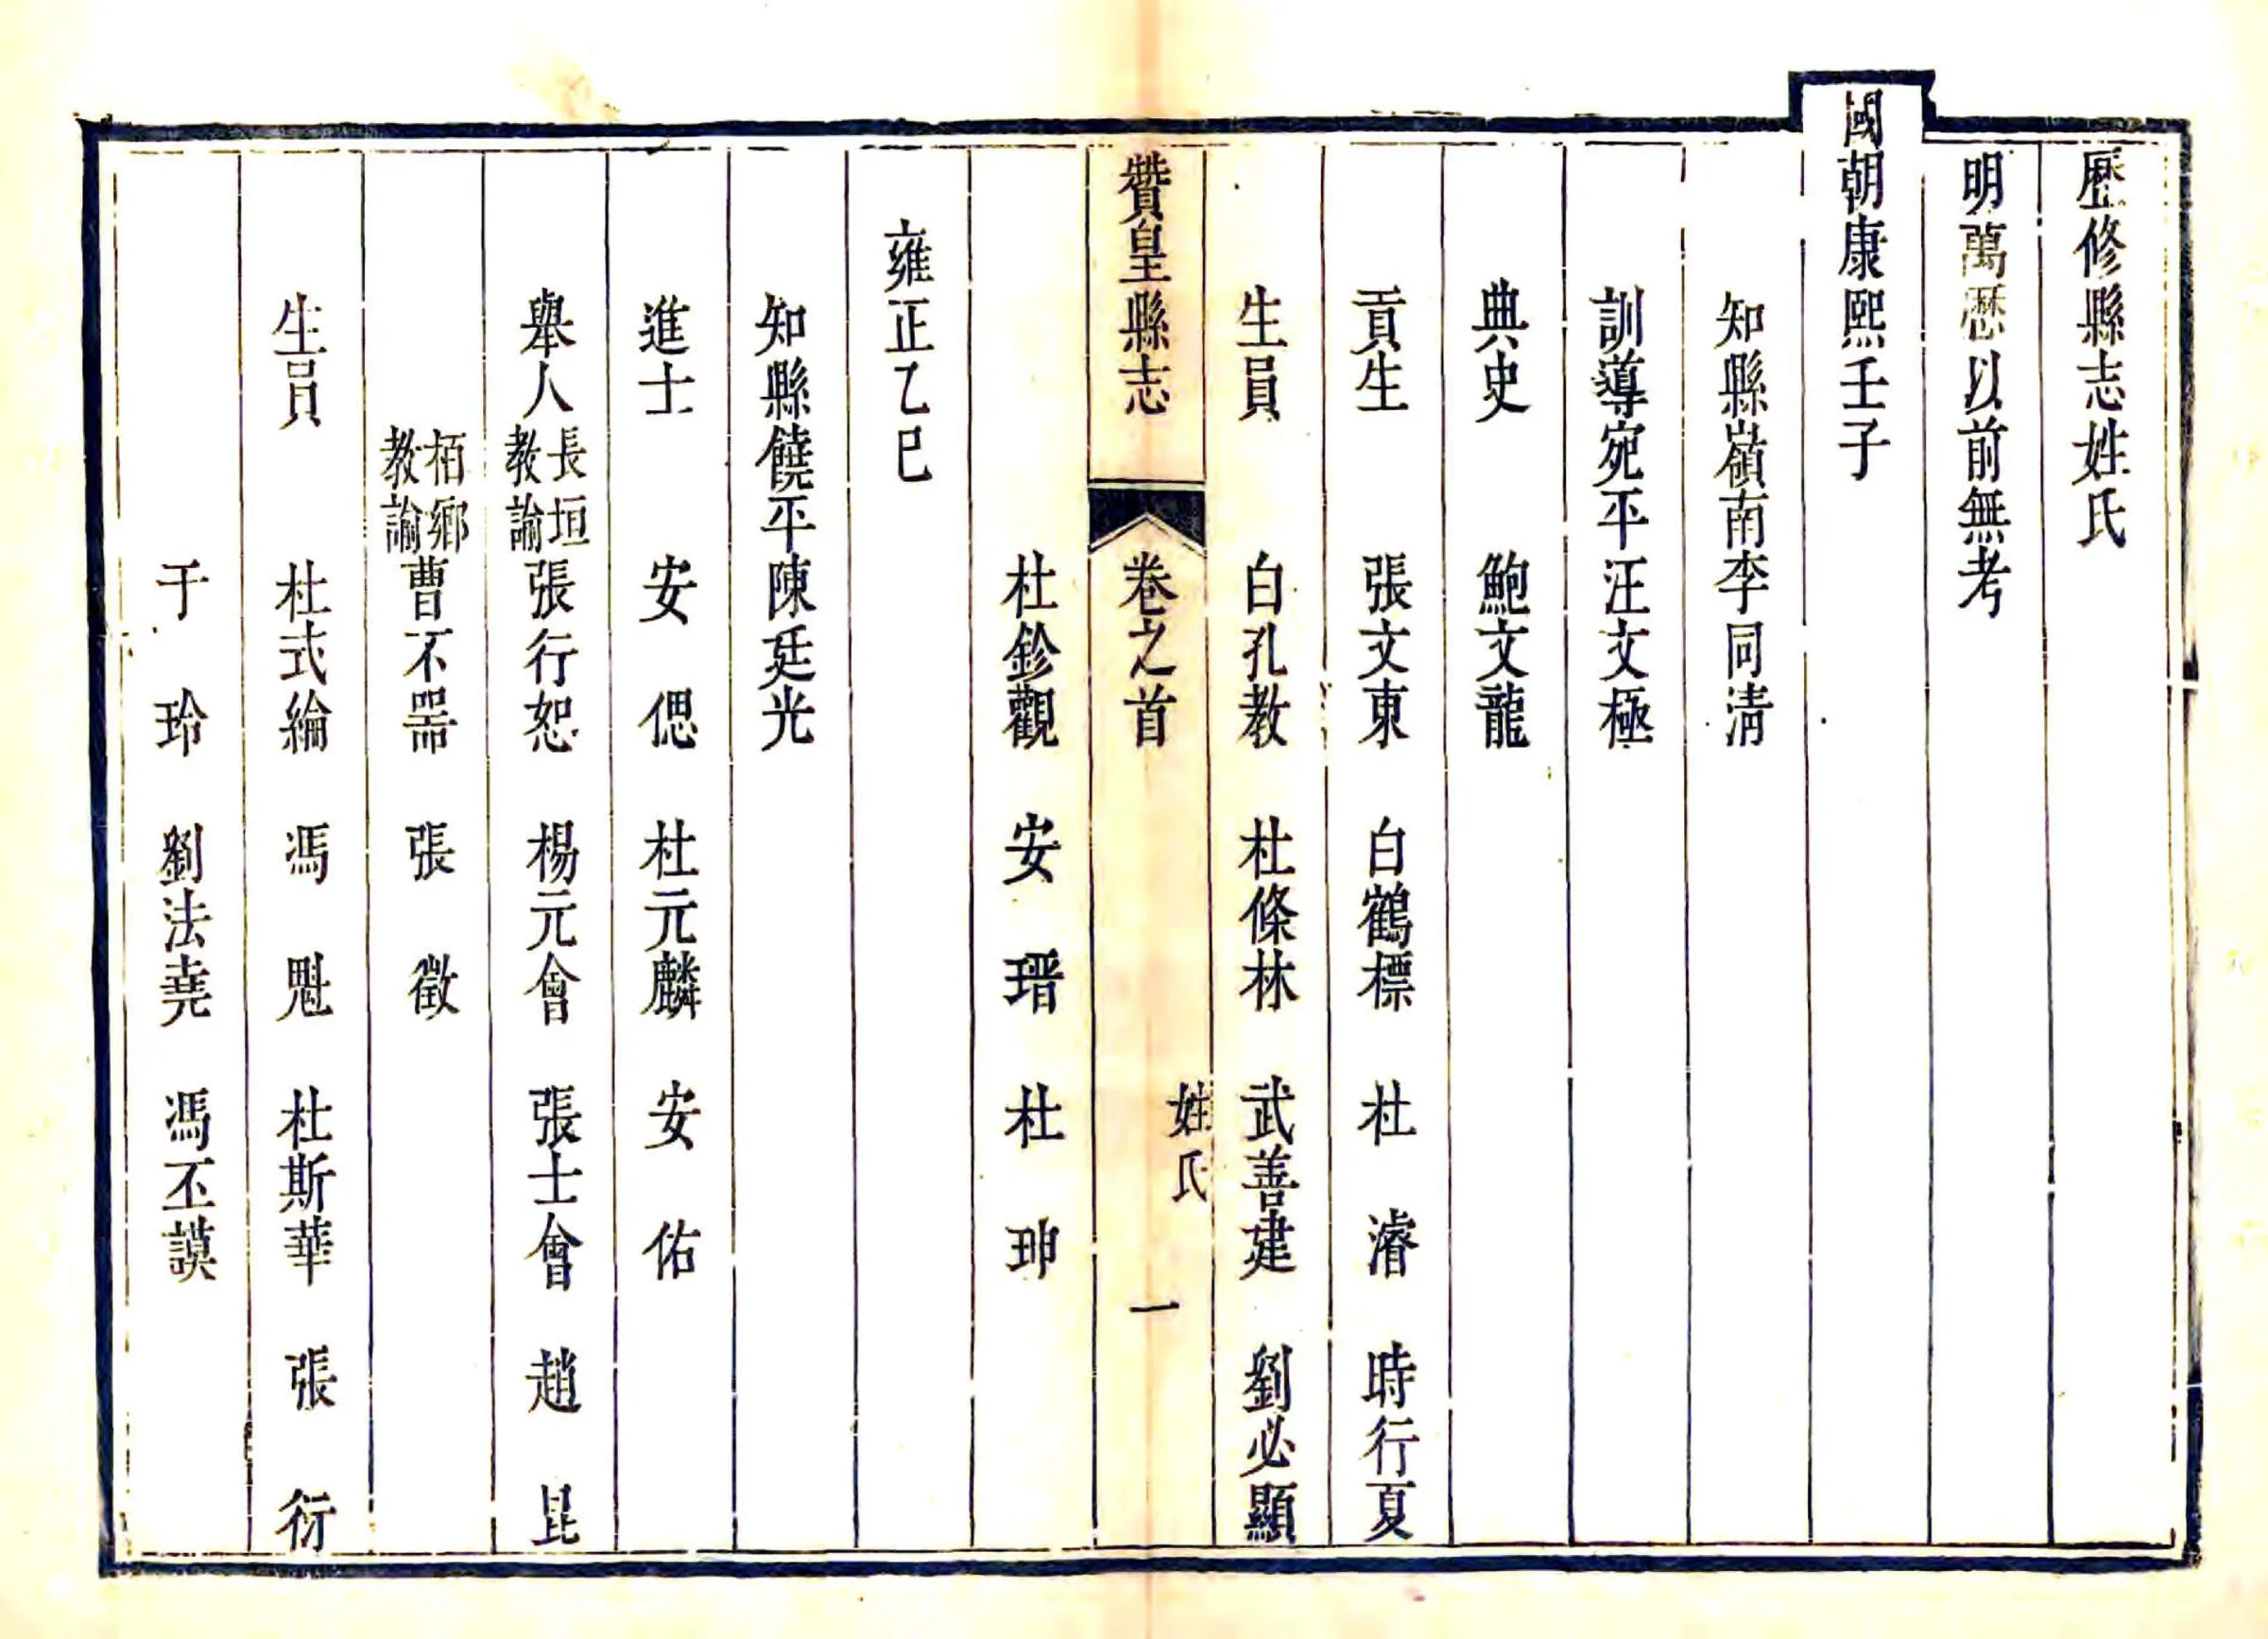 歷修縣志姓氏
明萬厯以前無考
國朝康熙壬子
知縣嶺南李同清
訓導宛平汪文極
典史　鮑文龍
貢生　張文東　白鶴標　杜濬　時行夏
生員　白孔教　杜條林　武善建　劉必顯
贊皇縣志　卷之首　姓氏　一
杜鉁觀　安瑨　杜珋
雍正乙巳
知縣饒平陳廷光
進士　安偲　杜元麟　安佑
舉人　長垣教諭張行恕　楊元會　張士會　趙昆
栢鄉教諭曹不噐　張徵
生員　杜式綸　馮魁　杜斯華　張衍
于玲　劉法堯　馮丕謨